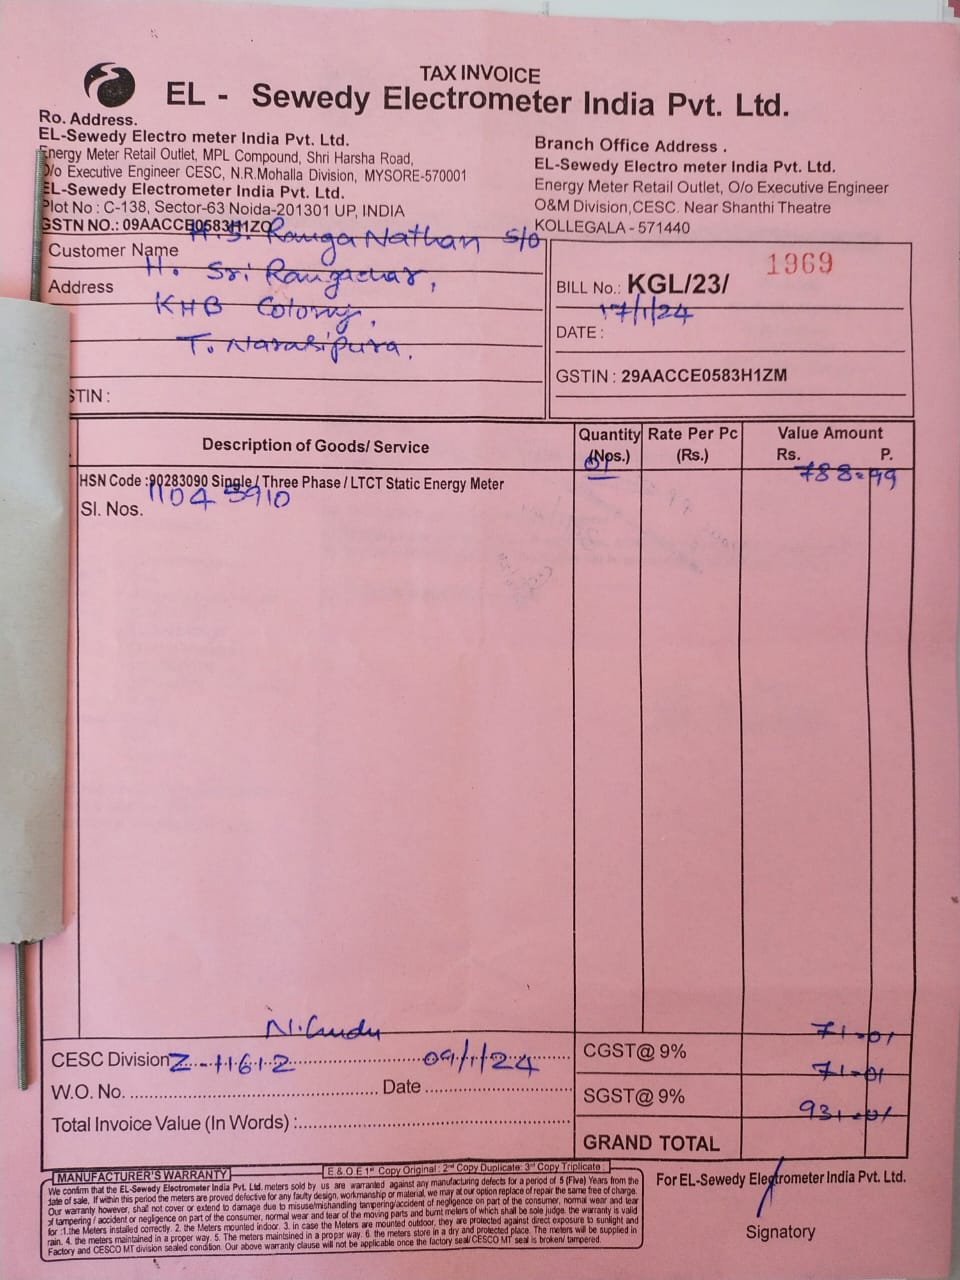 TAX INVOICE
EL - Sewedy Electrometer India Pvt. Ltd.
Ro. Address.
EL-Sewedy Electro meter India Pvt. Ltd.
Energy Meter Retail Outlet, MPL Compound, Shri Harsha Road,
O/o Executive Engineer CESC, N.R.Mohalla Division, MYSORE-570001
EL-Sewedy Electrometer India Pvt. Ltd.
Plot No : C-138, Sector-63 Noida-201301 UP, INDIA
GSTN NO.: 09AACCE0583H1ZQ
Branch Office Address .
EL-Sewedy Electro meter India Pvt. Ltd.
Energy Meter Retail Outlet, O/o Executive Engineer
O&M Division,CESC. Near Shanthi Theatre
KOLLEGALA - 571440
Customer Name H.S. Ranga Nathan S/o
Address H. Sri Rangachar,
KHB Colony,
T. Narasipura.
STIN :
1969
BILL No.: KGL/23/
DATE : 17/1/24
GSTIN : 29AACCE0583H1ZM
Description of Goods/ Service Quantity (Nos.) Rate Per Pc (Rs.) Value Amount Rs. P.
HSN Code :90283090 Single / Three Phase / LTCT Static Energy Meter 01 788=99
Sl. Nos. 11045910
CESC Division Z-11612 09/1/24
W.O. No. Date
Total Invoice Value (In Words) :
CGST@ 9% 71-01
SGST@ 9% 71-01
GRAND TOTAL 931-01
E & O E 1st Copy Original : 2nd Copy Duplicate: 3rd Copy Triplicate :
MANUFACTURER'S WARRANTY
We confirm that the EL-Sewedy Electrometer India Pvt. Ltd. meters sold by us are warranted against any manufacturing defects for a period of 5 (Five) Years from the
date of sale. If within this period the meters are proved defective for any faulty design, workmanship or material, we may at our option replace of repair the same free of charge.
Our warranty however, shall not cover or extend to damage due to misuse/mishandling tampering/accident of negligence on part of the consumer, normal wear and tear
of tampering / accident or negligence on part of the consumer, normal wear and tear of the moving parts and burnt meters of which shall be sole judge. the warranty is valid
for :1.the Meters installed correctly. 2. the Meters mounted indoor. 3. in case the Meters are mounted outdoor, they are protected against direct exposure to sunlight and
rain. 4. the meters maintained in a proper way. 5. The meters maintsined in a proper way. 6. the meters store in a dry and protected place. The meters will be supplied in
Factory and CESCO MT division sealed condition. Our above warranty clause will not be applicable once the factory seal/CESCO MT seal is broken/ tampered.
For EL-Sewedy Electrometer India Pvt. Ltd.
Signatory